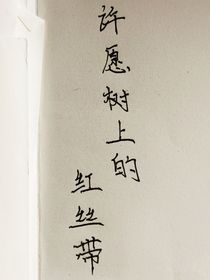 许愿树上的
红丝带